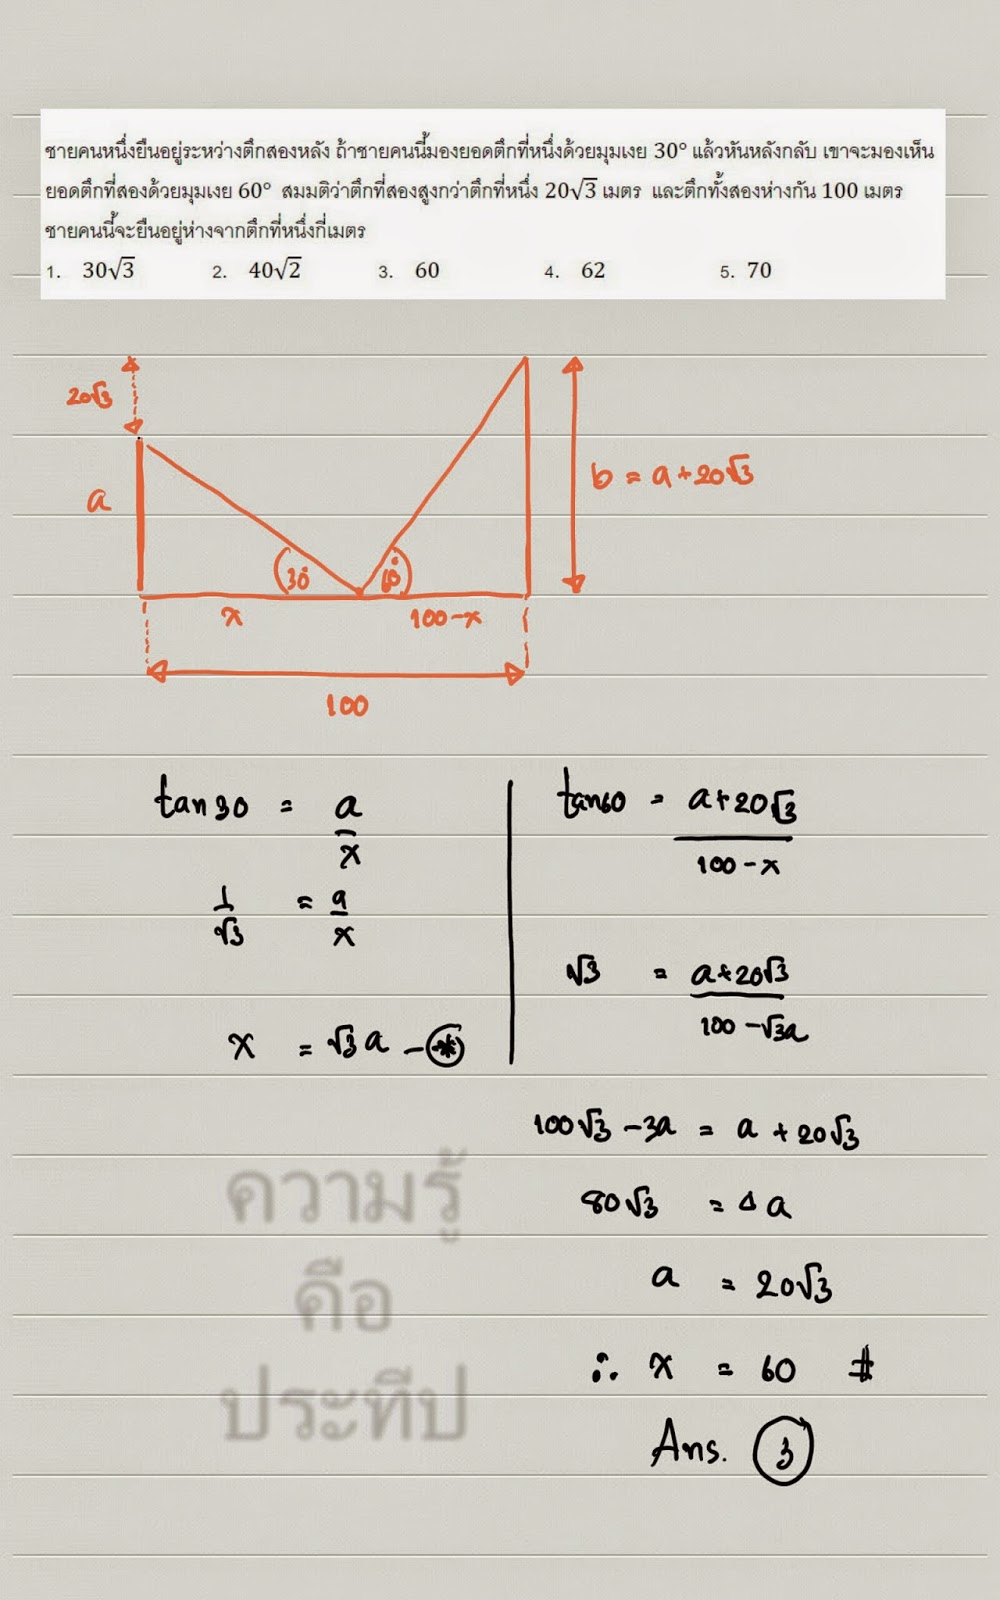 ชายคนหนึ่งยืนอยู่ระหว่างตึกสองหลัง ถ้าชายคนนี้มองยอดตึกที่หนึ่งด้วยมุมเงย 30° แล้วหันหลังกลับ เขาจะมองเห็น
ยอดตึกที่สองด้วยมุมเงย 60° สมมติว่าตึกที่สองสูงกว่าตึกที่หนึ่ง 20√3 เมตร และตึกทั้งสองห่างกัน 100 เมตร
ชายคนนี้จะยืนอยู่ห่างจากตึกที่หนึ่งกี่เมตร
1. 30√3 2. 40√2 3. 60 4. 62 5. 70
20√3
a
b = a+20√3
30°
60°
x
100-x
100
tan30 = a/x
1/√3 = a/x
x = √3 a - *
tan60 = a+20√3 / 100-x
√3 = a+20√3 / 100-√3a
100√3 - 3a = a + 20√3
80√3 = 4a
a = 20√3
∴ x = 60 #
Ans. 3
ความรู้
คือ
ประทีป